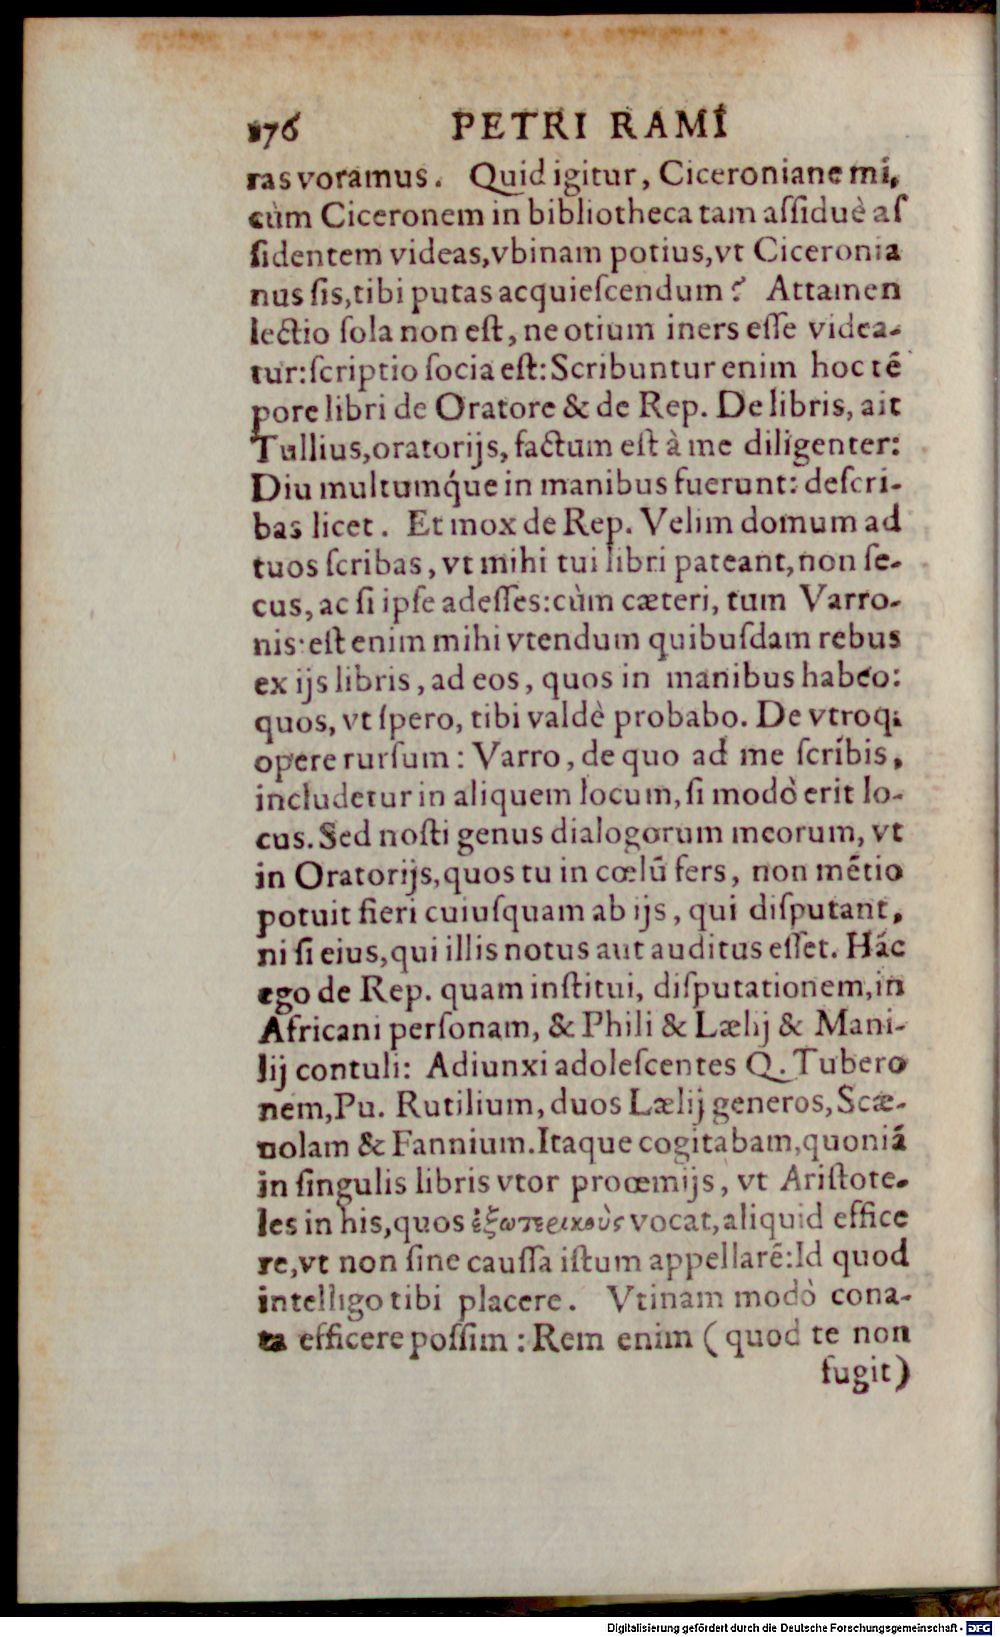 176 PETRI RAMI
ras voramus. Quid igitur, Ciceroniane mi,
cùm Ciceronem in bibliotheca tam aſſiduè aſ
ſidentem videas, vbinam potius, vt Ciceronia
nus ſis, tibi putas acquieſcendum? Attamen
lectio ſola non eſt, ne otium iners eſſe videa-
tur: ſcriptio ſocia eſt: Scribuntur enim hoc tē
pore libri de Oratore & de Rep. De libris, ait
Tullius, oratorijs, factum eſt à me diligenter:
Diu multumq́ue in manibus fuerunt: deſcri-
bas licet. Et mox de Rep. Velim domum ad
tuos ſcribas, vt mihi tui libri pateant, non ſe-
cus, ac ſi ipſe adeſſes: cùm cæteri, tum Varro-
nis: eſt enim mihi vtendum quibuſdam rebus
ex ijs libris, ad eos, quos in manibus habeo:
quos, vt ſpero, tibi valdè probabo. De vtroq;
opere rurſum: Varro, de quo ad me ſcribis,
includetur in aliquem locum, ſi modò erit lo-
cus. Sed noſti genus dialogorum meorum, vt
in Oratorijs, quos tu in cœlū fers, non mētio
potuit fieri cuiuſquam ab ijs, qui diſputant,
ni ſi eius, qui illis notus aut auditus eſſet. Hāc
ego de Rep. quam inſtitui, diſputationem, in
Africani perſonam, & Phili & Lælij & Mani-
lij contuli: Adiunxi adoleſcentes Q. Tubero
nem, Pu. Rutilium, duos Lælij generos, Scæ-
uolam & Fannium. Itaque cogitabam, quoniā
in ſingulis libris vtor procemijs, vt Ariſtote-
les in his, quos ἐξωτερικοὺς vocat, aliquid effice
re, vt non ſine cauſſa iſtum appellarē: Id quod
intelligo tibi placere. Vtinam modò cona-
ta efficere poſſim: Rem enim (quod te non
fugit)
Digitalisierung gefördert durch die Deutsche Forschungsgemeinschaft - DFG